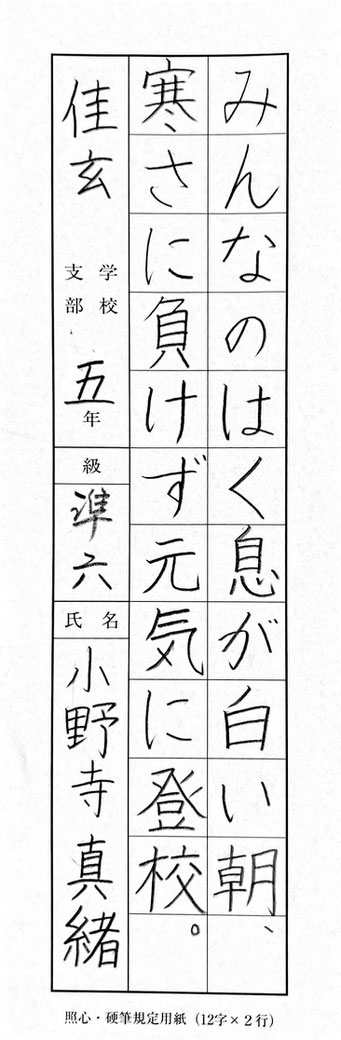 みんなのはく息が白い朝、
寒さに負けず元気に登校。
佳玄
学校
支部
五年
級
準六
氏名
小野寺真緒
照心・硬筆規定用紙(12字×2行)